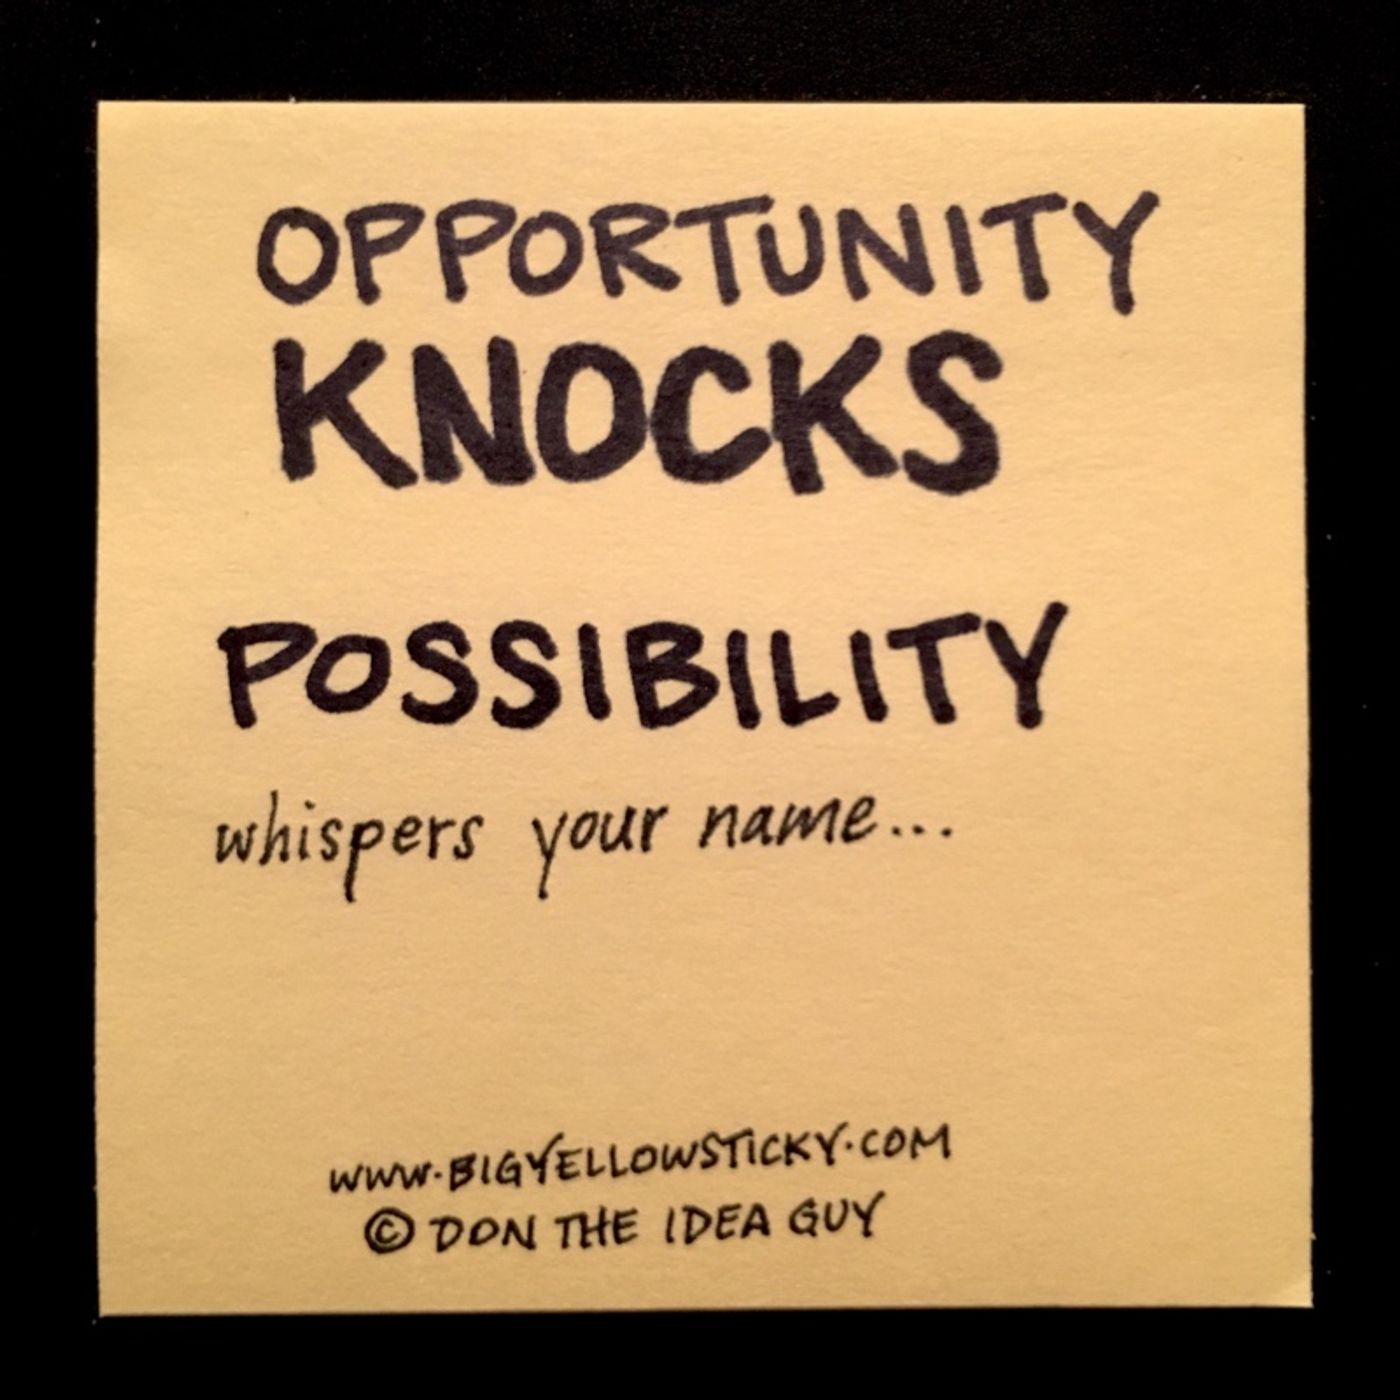 OPPORTUNITY
KNOCKS
POSSIBILITY
whispers your name...
www.BIGYELLOWSTICKY.COM
© DON THE IDEA GUY